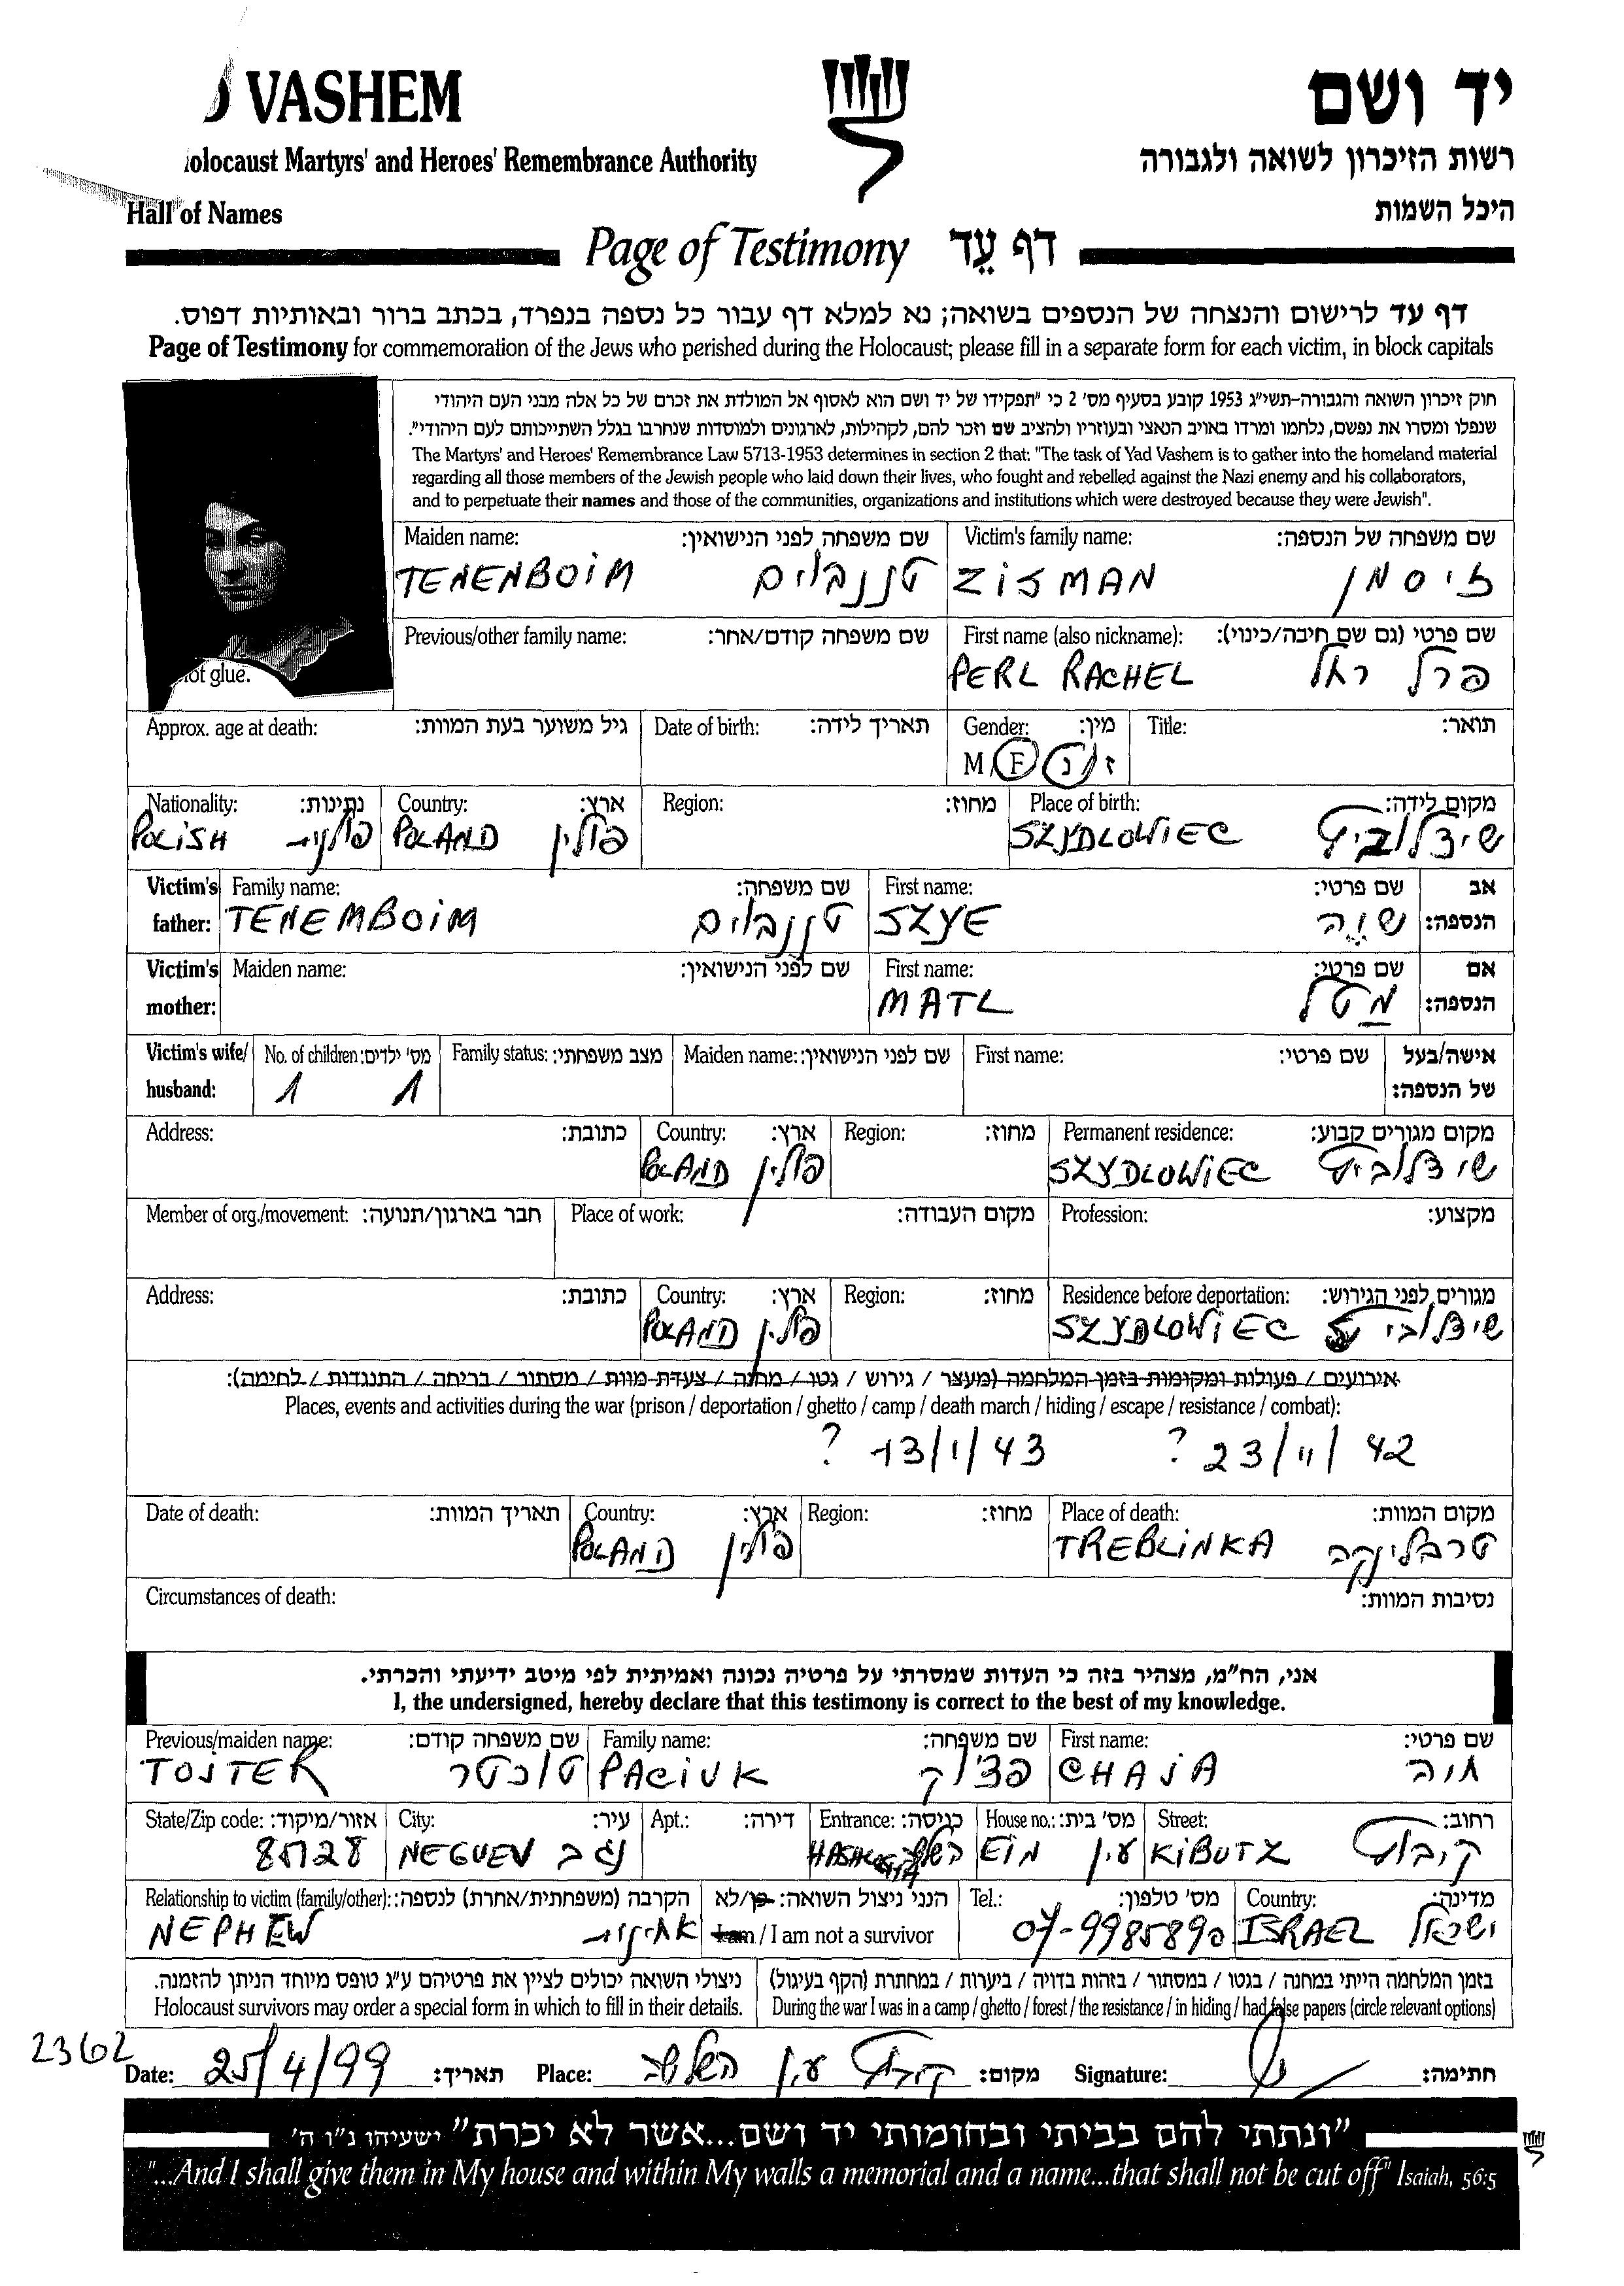 VASHEM
יד ושם
Holocaust Martyrs' and Heroes' Remembrance Authority
רשות הזיכרון לשואה ולגבורה
Hall of Names
היכל השמות
Page of Testimony דף עֵד
דף עד לרישום והנצחה של הנספים בשואה; נא למלא דף עבור כל נספה בנפרד, בכתב ברור ובאותיות דפוס.
Page of Testimony for commemoration of the Jews who perished during the Holocaust; please fill in a separate form for each victim, in block capitals
חוק זיכרון השואה והגבורה-תשי"ג 1953 קובע בסעיף מס' 2 כי "תפקידו של יד ושם הוא לאסוף אל המולדת את זכרם של כל אלה מבני העם היהודי
שנפלו ומסרו את נפשם, נלחמו ומרדו באויב הנאצי ובעוזריו ולהציב שם וזכר להם, לקהילות, לארגונים ולמוסדות שנחרבו בגלל השתייכותם לעם היהודי".
The Martyrs' and Heroes' Remembrance Law 5713-1953 determines in section 2 that: "The task of Yad Vashem is to gather into the homeland material
regarding all those members of the Jewish people who laid down their lives, who fought and rebelled against the Nazi enemy and his collaborators,
and to perpetuate their names and those of the communities, organizations and institutions which were destroyed because they were Jewish".
not glue.
Maiden name: שם משפחה לפני הנישואין: Victim's family name: שם משפחה של הנספה:
TENENBOIM טננבוים ZISMAN זיסמן
Previous/other family name: שם משפחה קודם/אחר: First name (also nickname): שם פרטי (גם שם חיבה/כינוי):
PERL RACHEL פרל רחל
Approx. age at death: גיל משוער בעת המוות: Date of birth: תאריך לידה: Gender: מין: Title: תואר:
M F ז/נ
Nationality: נתינות: Country: ארץ: Region: מחוז: Place of birth: מקום לידה:
POLISH פולנית POLAND פולין SZYDLOWIEC שידלוביץ
Victim's Family name: שם משפחה: First name: שם פרטי: אב
father: TENEMBOIM טננבוים SZYE שיה הנספה:
Victim's Maiden name: שם לפני הנישואין: First name: שם פרטי: אם
mother: MATL מטל הנספה:
Victim's wife/ No. of children: מס' ילדים: Family status: מצב משפחתי: Maiden name: שם לפני הנישואין: First name: שם פרטי: אישה/בעל
husband: 1 1 של הנספה:
Address: כתובת: Country: ארץ: Region: מחוז: Permanent residence: מקום מגורים קבוע:
POLAND פולין SZYDLOWIEC שידלוביץ
Member of org./movement: חבר בארגון/תנועה: Place of work: מקום העבודה: Profession: מקצוע:
Address: כתובת: Country: ארץ: Region: מחוז: Residence before deportation: מגורים לפני הגירוש:
POLAND פולין SZYDLOWIEC שידלוביץ
אירועים / פעולות ומקומות בזמן המלחמה (מעצר / גירוש / גטו / מחנה / צעדת מוות / מסתור / בריחה / התנגדות / לחימה):
Places, events and activities during the war (prison / deportation / ghetto / camp / death march / hiding / escape / resistance / combat):
? 13/1/43 ? 23/11/42
Date of death: תאריך המוות: Country: ארץ: Region: מחוז: Place of death: מקום המוות:
POLAND פולין TREBLINKA טרבלינקה
Circumstances of death: נסיבות המוות:
אני, הח"מ, מצהיר בזה כי העדות שמסרתי על פרטיה נכונה ואמיתית לפי מיטב ידיעתי והכרתי.
I, the undersigned, hereby declare that this testimony is correct to the best of my knowledge.
Previous/maiden name: שם משפחה קודם: Family name: שם משפחה: First name: שם פרטי:
TOJTER PACIUK פצ'וק CHAJA חיה
State/Zip code: אזור/מיקוד: City: עיר: Apt.: דירה: Entrance: כניסה: House no.: מס' בית: Street: רחוב:
85128 NEGUEV נגב השלשה EIN עין KIBUTZ קיבוץ
Relationship to victim (family/other): הקרבה (משפחתית/אחרת) לנספה: הנני ניצול השואה: כן/לא Tel.: מס' טלפון: Country: מדינה:
NEPHEW אחינית I am / I am not a survivor 07-9985890 ISRAEL ישראל
ניצולי השואה יכולים לציין את פרטיהם ע"ג טופס מיוחד הניתן להזמנה. בזמן המלחמה הייתי במחנה / בגטו / במסתור / בזהות בדויה / ביערות / במחתרת (הקף בעיגול)
Holocaust survivors may order a special form in which to fill in their details. During the war I was in a camp / ghetto / forest / the resistance / in hiding / had false papers (circle relevant options)
2362
Date: 25/4/99 תאריך: Place: קיבוץ עין השלשה מקום: Signature: חתימה:
"ונתתי להם בביתי ובחומותי יד ושם...אשר לא יכרת" ישעיהו נ"ו ה'
"...And I shall give them in My house and within My walls a memorial and a name...that shall not be cut off" Isaiah, 56:5